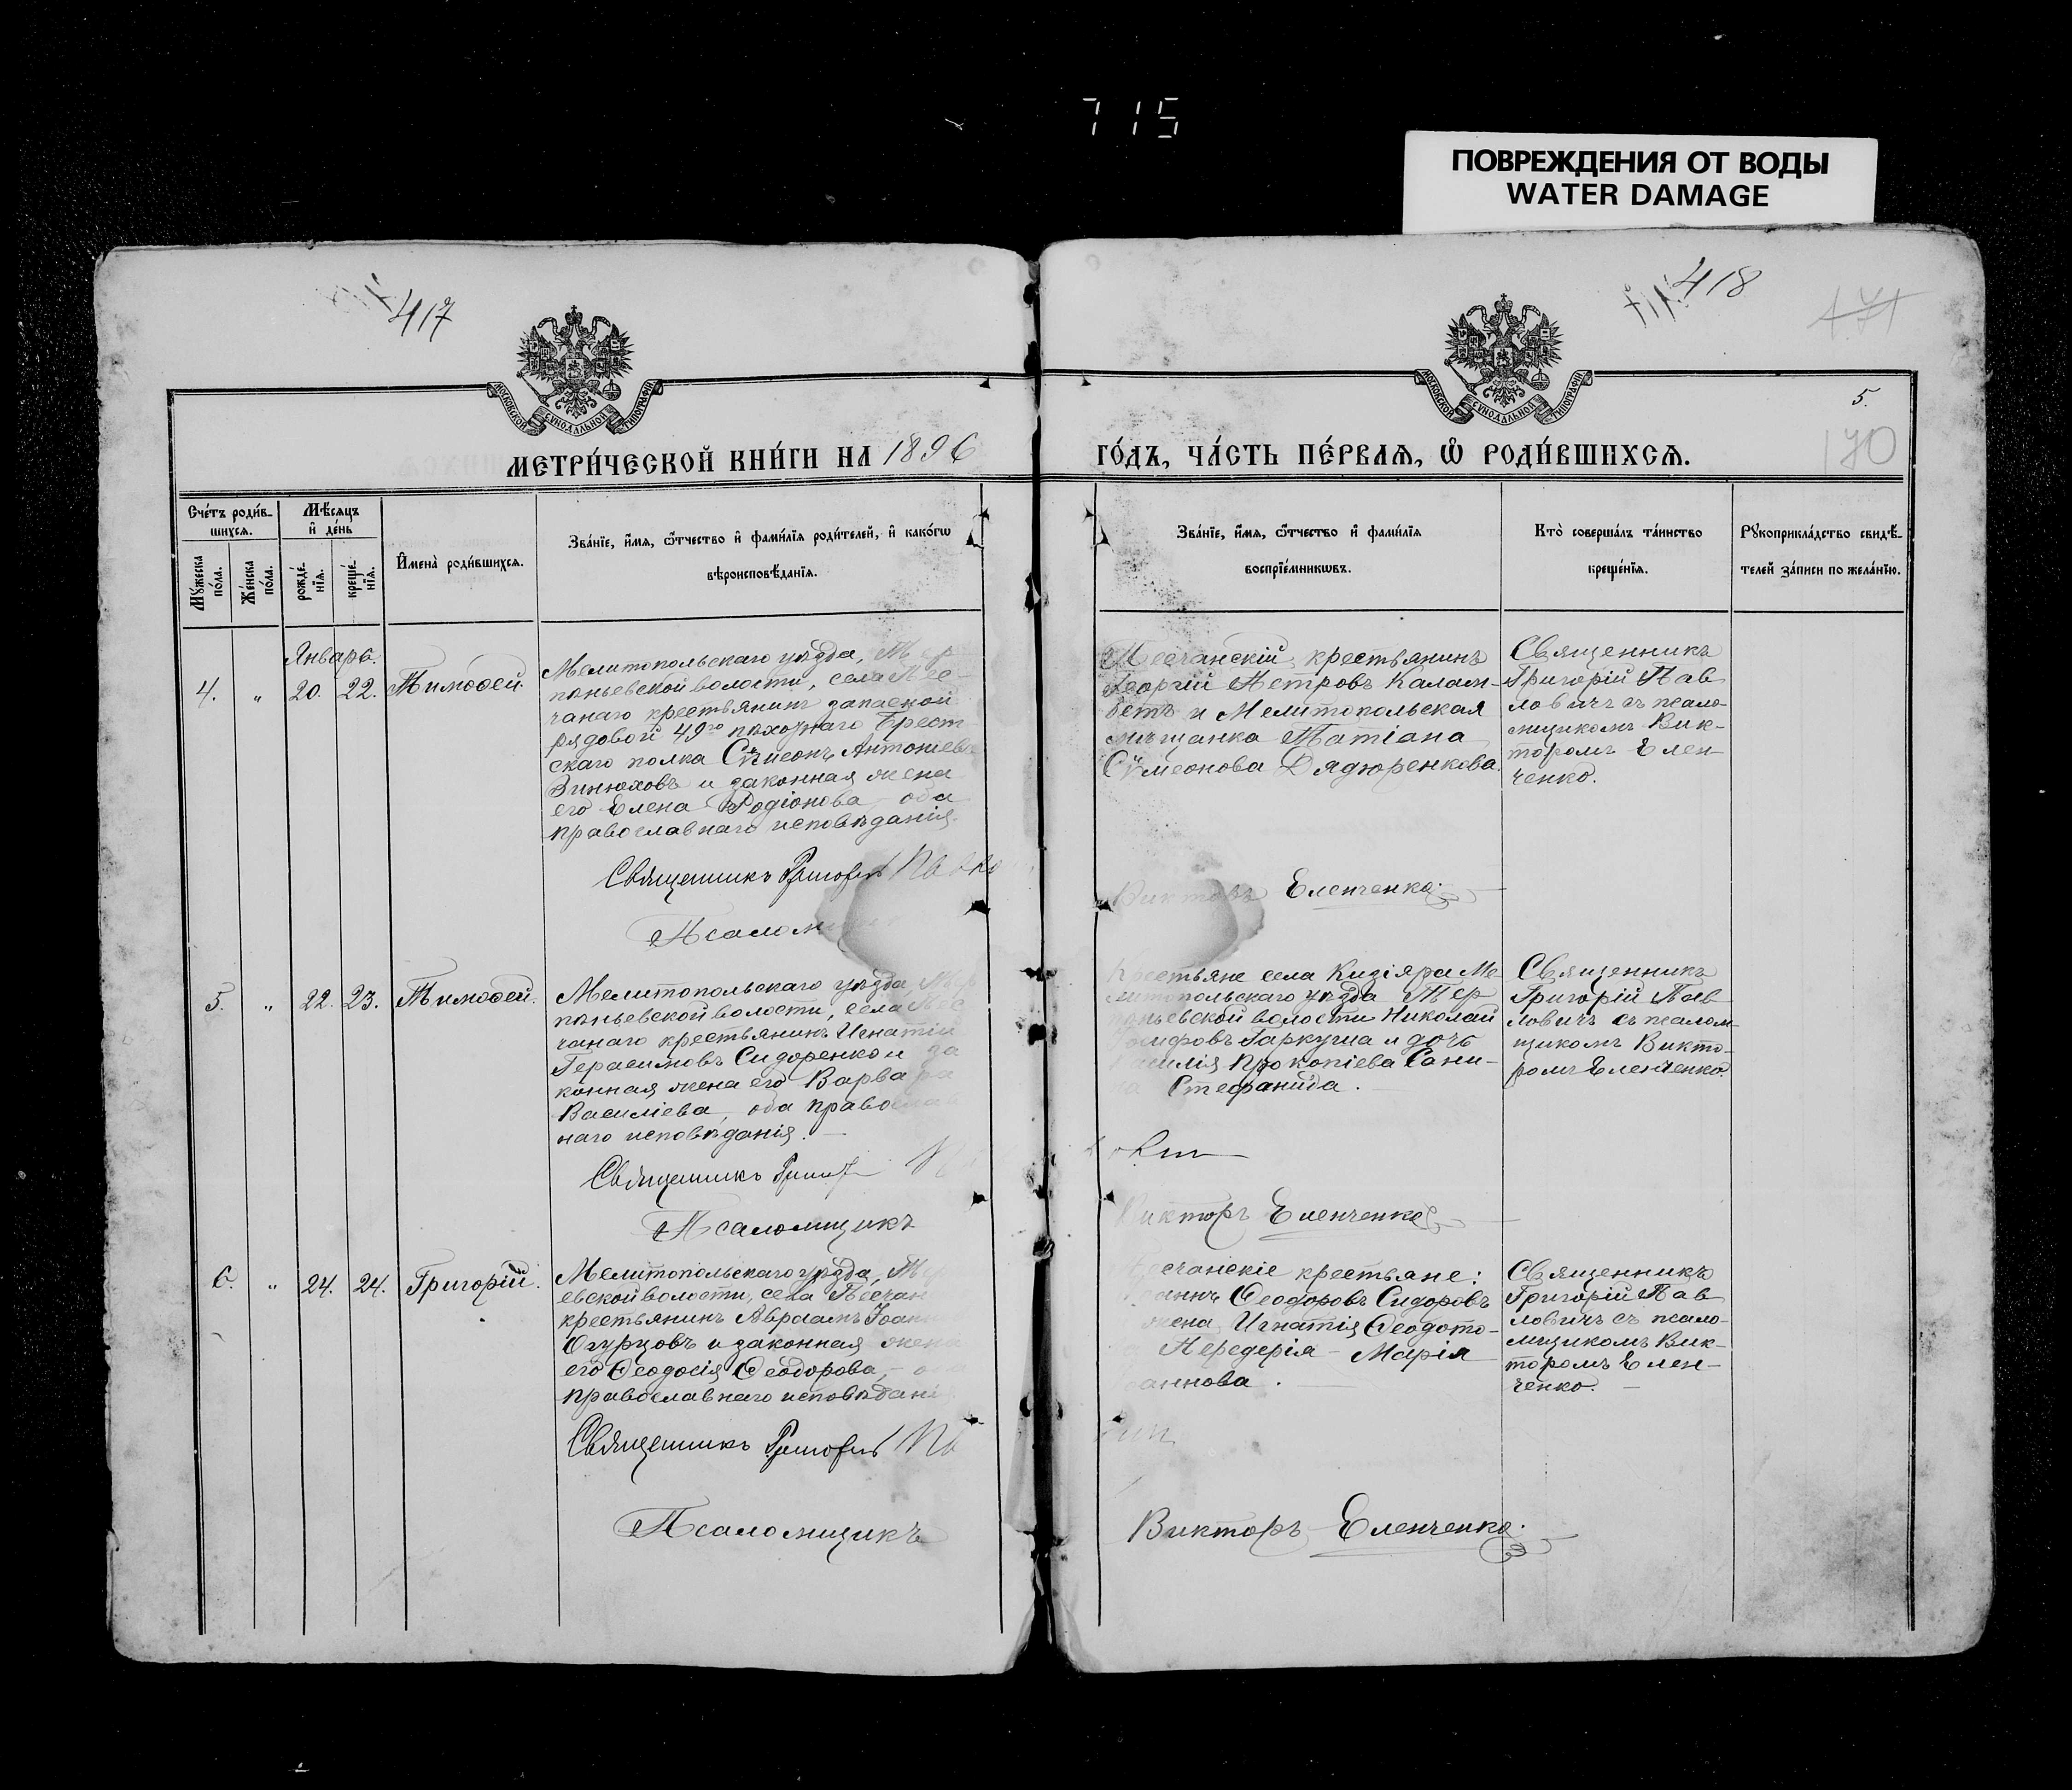 715
ПОВРЕЖДЕНИЯ ОТ ВОДЫ
WATER DAMAGE
417
418
МОСКОВСКОЙ СѴНОДАЛЬНОЙ ТИПОГРАФІИ
МОСКОВСКОЙ СѴНОДАЛЬНОЙ ТИПОГРАФІИ
5.
170
МЕТРИ́ЧЕСКОЙ КНИ́ГИ НА 1896
ГО́ДЪ, ЧА́СТЬ ПЕ́РВАѦ, Ѡ҆ РОДИ́ВШИХСѦ.
Сче́тъ роди́в-
шихсѧ.
Мѣ́сяцъ
и҆ де́нь
Мꙋ́жеска
по́ла.
Же́нска
по́ла.
рожде́-
нїѧ.
креще́-
нїѧ.
И҆мена̀ роди́вшихсѧ.
Зва́нїе, и҆́мѧ, ѻ҆́тчество и҆ фами́лїѧ роди́телей, и҆ како́гѡ
вѣроисповѣ́данїѧ.
Зва́нїе, и҆́мѧ, ѻ҆́тчество и҆ фами́лїѧ
воспрїе́мникѡвъ.
Кто̀ соверша́лъ та́инство
креще́нїѧ.
Рꙋкоприкла́дство свидѣ́-
телей за́писи по жела́нїю.
Январь.
4. " 20. 22. Тимоѳей.
Мелитопольскаго уѣзда, Тер
паньевской волости, села Пес-
чанаго крестьянинъ запасной
рядовой 49го пѣхотнаго Брест
скаго полка Сѵмеонъ Антоніевъ
Зинюховъ и законная жена
его Елена Родіонова, оба
православнаго исповѣданія.
Священникъ Григорій
Псалом
Песчанскій крестьянинъ
Георгій Петровъ Калам-
бетъ и Мелитопольская
мѣщанка Татіана
Сѵмеонова Дядюренкова.
Викторъ Еленченко.
Священникъ
Григорій Пав
ловичъ съ псало-
мщикомъ Вик-
торомъ Елен-
ченко.
5. " 22. 23. Тимоѳей.
Мелитопольскаго уѣзда Тер
паньевской волости, села Пес
чанаго крестьянинъ Игнатій
Герасимовъ Сидоренко и за
конная жена его Варвара
Василіева, оба православ
наго исповѣданія. —
Священникъ Григ
Псаломщикъ
Крестьяне села Кизіяра Ме
литопольскаго уѣзда Тер
паньевской волости Николай
Гаркуша и дочь
Прокопіева Сани-
на Стефанида.
Викторъ Еленченко
Священникъ
Григорій Пав
ловичъ съ псалом-
щикомъ Викто-
ромъ Еленченко.
6. " 24. 24. Григорій.
Мелитопольскаго уѣзда, Т
евской волости, села Песчан
крестьянинъ Авраамъ Іоанн
Огурцовъ и законная жена
его Ѳеодосія Ѳеодорова, — о
православнаго исповѣдані
Священникъ Григорій
Псаломщикъ
есчанскіе крестьяне:
оаннъ Ѳеодоровъ Сидоровъ
жена Игнатія Ѳеодото-
Передерія — Марія
оаннова.
Викторъ Еленченко.
Священникъ
Григорій Пав
ловичъ съ псало-
мщикомъ Вик-
торомъ Елен-
ченко. —